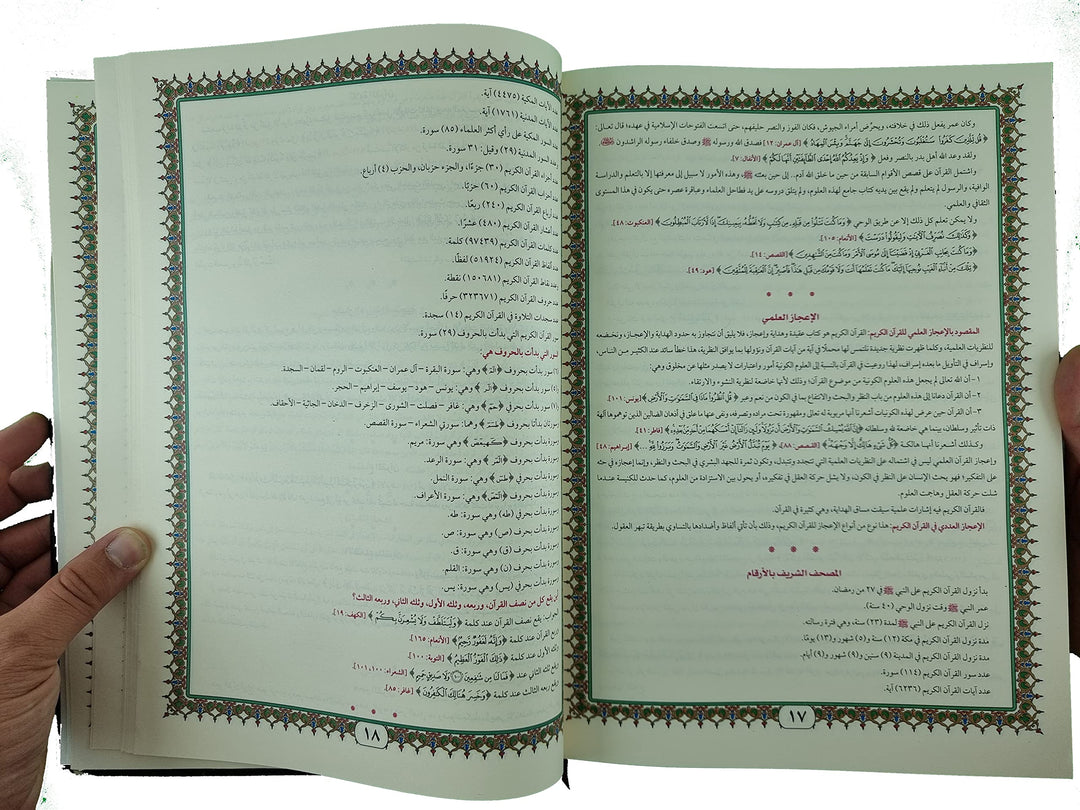 وكان عمر يفعل ذلك في خلافته، ويحرِّض أمراء الجيوش، فكان الفوز والنصر حليفهم، حتى اتسعت الفتوحات الإسلامية في عهده؛ قال تعالى:
﴿ قُل لِّلَّذِينَ كَفَرُوا۟ سَتُغْلَبُونَ وَتُحْشَرُونَ إِلَىٰ جَهَنَّمَ وَبِئْسَ ٱلْمِهَادُ ﴾ [آل عمران: ١٢] فصدق الله ورسوله ﷺ وصدق خلفاء رسوله الراشدون
ولقد وعد الله أهل بدر بالنصر وفعل ﴿ وَإِذْ يَعِدُكُمُ ٱللَّهُ إِحْدَى ٱلطَّآئِفَتَيْنِ أَنَّهَا لَكُمْ ﴾ [الأنفال: ٧].
واشتمل القرآن على قصص الأقوام السابقة من حين ما خلق الله آدم.. إلى حين بعثته ﷺ، وهذه الأمور لا سبيل إلى معرفتها إلا بالتعلم والدراسة
الوافية، والرسول لم يتعلم ولم يقع بين يديه كتاب جامع لهذه العلوم، ولم يتلق دروسه على يد فطاحل العلماء وعباقرة عصره حتى يكون في هذا المستوى
الثقافي والعلمي.
ولا يمكن تعلم كل ذلك إلا عن طريق الوحي ﴿ وَمَا كُنتَ تَتْلُوا۟ مِن قَبْلِهِۦ مِن كِتَٰبٍ وَلَا تَخُطُّهُۥ بِيَمِينِكَ إِذًا لَّٱرْتَابَ ٱلْمُبْطِلُونَ ﴾ [العنكبوت: ٤٨].
﴿ وَكَذَٰلِكَ نُصَرِّفُ ٱلْءَايَٰتِ وَلِيَقُولُوا۟ دَرَسْتَ ﴾ [الأنعام: ١٠٥].
﴿ وَمَا كُنتَ بِجَانِبِ ٱلْغَرْبِىِّ إِذْ قَضَيْنَآ إِلَىٰ مُوسَى ٱلْأَمْرَ وَمَا كُنتَ مِنَ ٱلشَّٰهِدِينَ ﴾ [القصص: ١٤].
﴿ تِلْكَ مِنْ أَنۢبَآءِ ٱلْغَيْبِ نُوحِيهَآ إِلَيْكَ مَا كُنتَ تَعْلَمُهَآ أَنتَ وَلَا قَوْمُكَ مِن قَبْلِ هَٰذَا فَٱصْبِرْ إِنَّ ٱلْعَٰقِبَةَ لِلْمُتَّقِينَ ﴾ [هود: ٤٩].
* * *
الإعجاز العلمي
المقصود بالإعجاز العلمي للقرآن الكريم: القرآن الكريم هو كتاب عقيدة وهداية وإعجاز، فلا يليق أن نتجاوز به حدود الهداية والإعجاز، ونخضعه
للنظريات العلمية، وكلما ظهرت نظرية جديدة نلتمس لها محملًا في آية من آيات القرآن ونزولها بما يوافق النظرية، هذا خطأ سائد عند الكثير من الناس،
وإسراف في التأويل ما بعده إسراف، لهذا روعيت في القرآن بالنسبة إلى العلوم الكونية أمور واعتبارات لا يصدر مثلها عن مخلوق وهي:
١ - أن الله تعالى لم يجعل هذه العلوم الكونية من موضوع القرآن؛ وذلك لأنها خاضعة لنظرية النشوء والارتقاء.
٢ - أن القرآن دعانا إلى هذه العلوم من باب البحث والانتفاع بما في الكون من نعم وعبر ﴿ قُلِ ٱنظُرُوا۟ مَاذَا فِى ٱلسَّمَٰوَٰتِ وَٱلْأَرْضِ ﴾ [يونس: ١٠١].
٣ - أن القرآن حين عرض لهذه الكونيات أشعرنا أنها مربوبة له تعالى ومقهورة تحت مراده وتصرفه، ونفى عنها ما علق في أذهان الضالين الذين توهموها آلهة
ذات تأثير وسلطان، بينما هي خاضعة لله وسلطانه ﴿ إِنَّ ٱللَّهَ يُمْسِكُ ٱلسَّمَٰوَٰتِ وَٱلْأَرْضَ أَن تَزُولَا وَلَئِن زَالَتَآ إِنْ أَمْسَكَهُمَا مِنْ أَحَدٍ مِّنۢ بَعْدِهِۦٓ ﴾ [فاطر: ٤١].
وكذلك أشعرنا أنها هالكة ﴿ كُلُّ شَىْءٍ هَالِكٌ إِلَّا وَجْهَهُۥ ﴾ [القصص: ٨٨]، ﴿ يَوْمَ تُبَدَّلُ ٱلْأَرْضُ غَيْرَ ٱلْأَرْضِ وَٱلسَّمَٰوَٰتُ وَبَرَزُوا۟ لِلَّهِ ... ﴾ [إبراهيم: ٤٨]
وإعجاز القرآن العلمي ليس في اشتماله على النظريات العلمية التي تتجدد وتتبدل، وتكون ثمرة للجهد البشري في البحث والنظر، وإنما إعجازه في حثه
على التفكير؛ فهو يحث الإنسان على النظر في الكون، ولا يشل حركة العقل في تفكيره، أو يحول بين الاستزادة من العلوم، كما حدث للكنيسة عندما
شلت حركة العقل وهاجت العلوم.
فالقرآن الكريم فيه إشارات علمية سيقت مساق الهداية، وهي كثيرة في القرآن.
الإعجاز العددي في القرآن الكريم: هذا نوع من أنواع الإعجاز للقرآن الكريم، وذلك بأن تأتي ألفاظ وأضدادها بالتساوي بطريقة تبهر العقول.
* * *
المصحف الشريف بالأرقام
بدأ نزول القرآن الكريم على النبي ﷺ في ٢٧ من رمضان.
عمر النبي ﷺ وقت نزول الوحي (٤٠ سنة).
نزل القرآن الكريم على النبي ﷺ لمدة (٢٣) سنة، وهي فترة رسالته.
مدة نزول القرآن الكريم في مكة (١٢) سنة و(٥) شهور و(١٣) يومًا.
مدة نزول القرآن الكريم في المدينة (٩) سنين و(٩) شهور و(٩) أيام.
عدد سور القرآن الكريم (١١٤) سورة.
عدد آيات القرآن الكريم (٦٢٣٦) آية.
١٧
عدد الآيات المكية (٤٤٧٥) آية.
عدد الآيات المدنية (١٧٦١) آية.
عدد السور المكية على رأي أكثر العلماء (٨٥) سورة.
عدد السور المدنية (٢٩) وقيل: ٣١ سورة.
عدد أجزاء القرآن الكريم (٣٠) جزءًا، والجزء حزبان، والحزب (٤) أرباع.
عدد أحزاب القرآن الكريم (٦٠) حزبًا.
عدد أرباع القرآن الكريم (٢٤٠) ربعًا.
عدد أعشار القرآن الكريم (٤٨٠) عشرًا.
عدد كلمات القرآن الكريم (٩٧٤٣٩) كلمة.
عدد ألفاظ القرآن الكريم (٥١٩٢٤) لفظًا.
عدد نقاط القرآن الكريم (١٥٠٦٨١) نقطة.
عدد حروف القرآن الكريم (٣٢٣٦٧١) حرفًا.
عدد سجدات التلاوة في القرآن الكريم (١٤) سجدة.
سور القرآن الكريم التي بدأت بالحروف (٢٩) سورة.
السور التي بدأت بالحروف هي:
(٦) سور بدأت بحروف ﴿الٓمٓ﴾ وهي: سورة البقرة - آل عمران - العنكبوت - الروم - لقمان - السجدة.
(٥) سور بدأت بحروف ﴿الٓر﴾ وهي: يونس - هود - يوسف - إبراهيم - الحجر.
سور بدأت بحرفي ﴿حمٓ﴾ وهي: غافر - فصلت - الشورى - الزخرف - الدخان - الجاثية - الأحقاف.
سورتان بدأتا بحروف ﴿طسٓمٓ﴾ وهما: سورتي الشعراء - سورة القصص.
سورة بدأت بحروف ﴿كٓهيعٓصٓ﴾ وهي سورة: مريم.
سورة بدأت بحروف ﴿الٓمٓر﴾ وهي: سورة الرعد.
سورة بدأت بحرفي ﴿طسٓ﴾ وهي: سورة النمل.
سورة بدأت بحروف ﴿الٓمٓصٓ﴾ وهي: سورة الأعراف.
سورة بدأت بحرفي (طه) وهي سورة: طه.
سورة بدأت بحرف (ص) وهي سورة: ص.
سورة بدأت بحرف (ق) وهي سورة: ق.
سورة بدأت بحرف (ن) وهي سورة: القلم.
سورة بدأت بحرفي (يس) وهي سورة: يس.
أين يقع كل من نصف القرآن، وربعه، وثلثه الأول، وثلثه الثاني، وربعه الثالث؟
الجواب: يقع نصف القرآن عند كلمة ﴿وَلْيَتَلَطَّفْ وَلَا يُشْعِرَنَّ بِكُمْ﴾ [الكهف: ١٩].
وربع القرآن عند كلمة ﴿وَإِنَّهُۥ لَغَفُورٌ رَّحِيمٌ﴾ [الأنعام: ١٦٥].
وثلثه الأول عند كلمة ﴿ذَٰلِكَ ٱلْفَوْزُ ٱلْعَظِيمُ﴾ [التوبة: ١٠٠].
ويقع ثلثه الثاني عند ﴿فَمَا لَنَا مِن شَٰفِعِينَ ۝ وَلَا صَدِيقٍ حَمِيمٍ﴾ [الشعراء: ١٠٠، ١٠١].
ويقع ربعه الثالث عند كلمة ﴿وَخَسِرَ هُنَالِكَ ٱلْكَٰفِرُونَ﴾ [غافر: ٨٥].
* * *
١٨